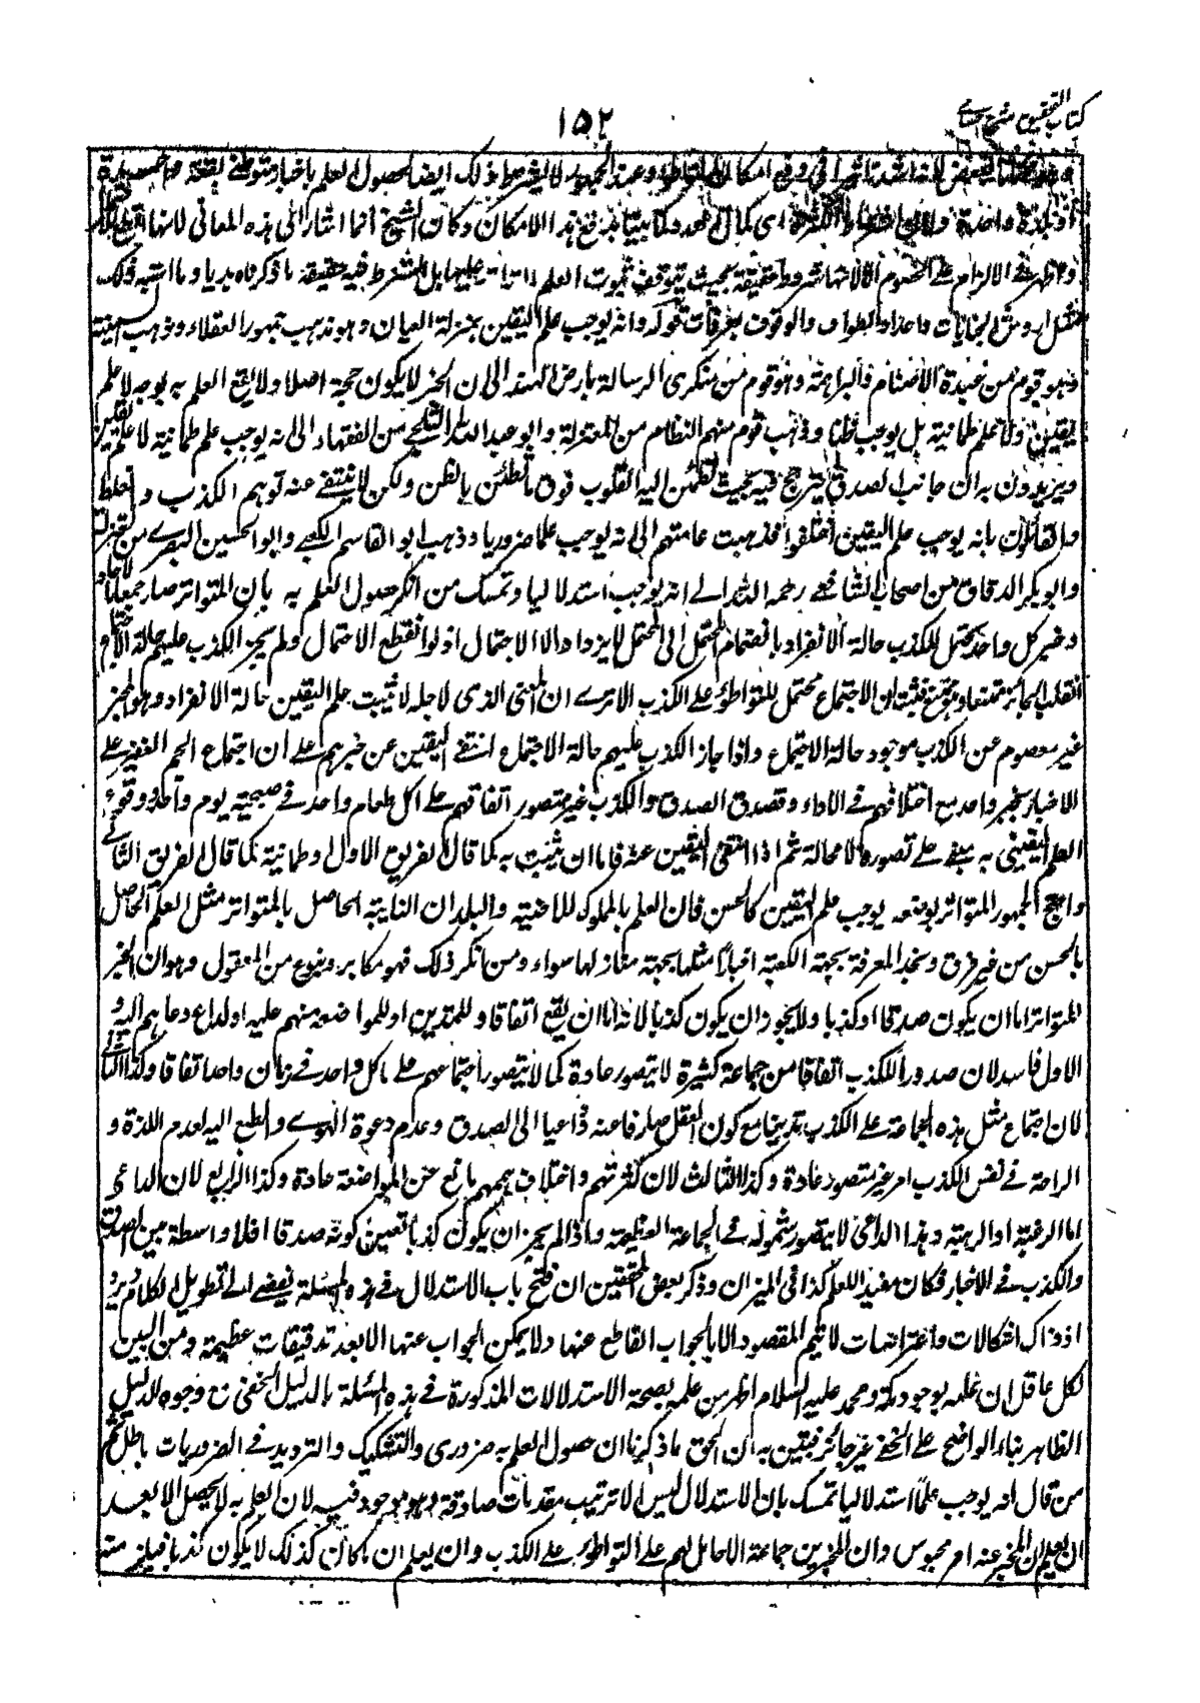 كتاب التحقيق شرح حسامي
١٥٢
لانه اشد تاثيرا في دفع امكان التواطؤ وعند الجمهور لا يشترط ذلك ايضا لحصول العلم باخبار متوطني بقعة
او بلدة واحدة اى كمال العدد يندفع هذا الامكان وكان الشيخ انما اشار الى هذه المعاني لانها اقطع
واظهر في الالزام على الخصوم لا لانها شروط حقيقة بحيث يتوقف ثبوت العلم بالتواتر عليها بل الشرط فيه حقيقة ما ذكرناه بديا وما اشبه ذلك
مثل اروش الجنايات واعداد الطواف والوقوف بعرفات قوله وانه يوجب علم اليقين بمنزلة العيان وهو مذهب جمهور العقلاء وذهب السمنية
وهو قوم من عبدة الاصنام والبراهمة وهو قوم من منكرى الرسالة بارض الهند الى ان الخبر لا يكون حجة اصلا ولا يقع العلم به بوجه لا علم
يقين ولا علم طمانية بل يوجب ظنا وذهب قوم منهم النظام من المعتزلة وابو عبد الله الثلجي من الفقهاء الى انه يوجب علم طمانية لا علم يقين
ويريدون به ان جانب الصدق يترجح فيه بحيث تطمئن اليه القلوب فوق ما تطمئن بالظن ولكن لا ينتفي عنه توهم الكذب والغلط
والقائلون بانه يوجب علم اليقين اختلفوا فذهبت عامتهم الى انه يوجب علما ضروريا وذهب ابو القاسم الكعبي وابو الحسين البصري من المعتزلة
وابو بكر الدقاق من اصحاب الشافعي رحمه الله الى انه يوجب استدلاليا وتمسك من انكر حصول العلم به بان المتواتر صار جمعا بالاحاد
وخبر كل واحد محتمل للكذب حالة الانفراد بانضمام المحتمل الى المحتمل لا يزداد الا الاحتمال اذ لو انقطع الاحتمال ولم يجز الكذب عليهم حالة الاجتماع
انقلب الجائز ممتنعا وهو ممتنع فثبت ان الاجتماع محتمل للتواطؤ على الكذب الا ترى ان المعنى الذى لاجله لا يثبت علم اليقين حالة الانفراد وهو المخبر
غير معصوم عن الكذب موجود حالة الاجتماع واذا جاز الكذب عليهم حالة الاجتماع انتفى اليقين عن خبرهم على ان اجتماع الجم الغفير على
الاخبار بخبر واحد مع اختلافهم في الاداء وقصد الصدق والكذب غير متصور اتفاقهم على اكل طعام واحد في صبيحة يوم واحد ووقوع
العلم اليقيني به يبتنى على تصوره لا محالة ثم اذا انتفى اليقين عنه فاما ان يثبت به كما قال الفريق الاول او طمانية كما قال الفريق الثاني
واحتج الجمهور المتواتر بوضعه يوجب علم اليقين كالحس فان العلم بالملوك الماضية والبلدان النائية الحاصل بالمتواتر مثل العلم الحاصل
بالحس من غير فرق ونجد المعرفة بجهة الكعبة اخبارا مثلها بجهة منازلها سواء ومن انكر ذلك فهو مكابر ونوع من المعقول وهو ان الخبر
المتواتر اما ان يكون صدقا او كذبا ولا يجوز ان يكون كذبا لانه اما ان يقع اتفاقا او للتدين او للمواضعة منهم عليه او لداع دعاهم اليه و
الاول فاسد لان صدور الكذب اتفاقا من جماعة كثيرة لا يتصور عادة كما لا يتصور اجتماعهم على ماكل واحد في زمان واحد اتفاقا وكذا الثاني
لان اجتماع مثل هذه الجماعة على الكذب تدينا مع كون العقل صارفا عنه داعيا الى الصدق وعدم دعوة الهوى والطبع اليه لعدم اللذة و
الراحة في نفس الكذب امر غير متصور عادة وكذا الثالث لان كثرتهم واختلاف هممهم مانع عن المواضعة عادة وكذا الرابع لان الداعي
اما الرغبة او الرهبة وهذا الداعي لا يتصور شموله في الجماعة العظيمة واذا لم يجز ان يكون كذبا تعين كونه صدقا اذ لا واسطة بين الصدق
والكذب في الاخبار فكان مفيدا للعلم كذا في الميزان وذكر بعض المحققين ان فتح باب الاستدلال في هذه المسئلة يفضى الى تطويل الكلام ويرد
اذ ذاك اشكالات واعتراضات لا يتم المقصود الا بالجواب القاطع عنها ولا يمكن الجواب عنها الا بعد تدقيقات عظيمة ومن البين
لكل عاقل ان علمه بوجود مكة ومحمد عليه السلام اظهر من علمه بصحة الاستدلالات المذكورة في هذه المسئلة بالدليل الخفي مع وجود الدليل
الظاهر بناء الواضح على الخفي غير جائز فتبين به ان الحق ما ذكرنا ان حصول العلم به ضرورى والتشكيك والترديد في الضروريات باطل ثم
من قال انه يوجب علما استدلاليا تمسك بان الاستدلال ليس الا ترتيب مقدمات صادقة وهو موجود فيه لان العلم به لا يحصل الا بعد
ان يعلم ان المخبر عنه امر محسوس وان المخبرين جماعة لا حامل لهم على التواطؤ على الكذب وان يعلم ان ما كان كذلك لا يكون كذبا فيلزم منه